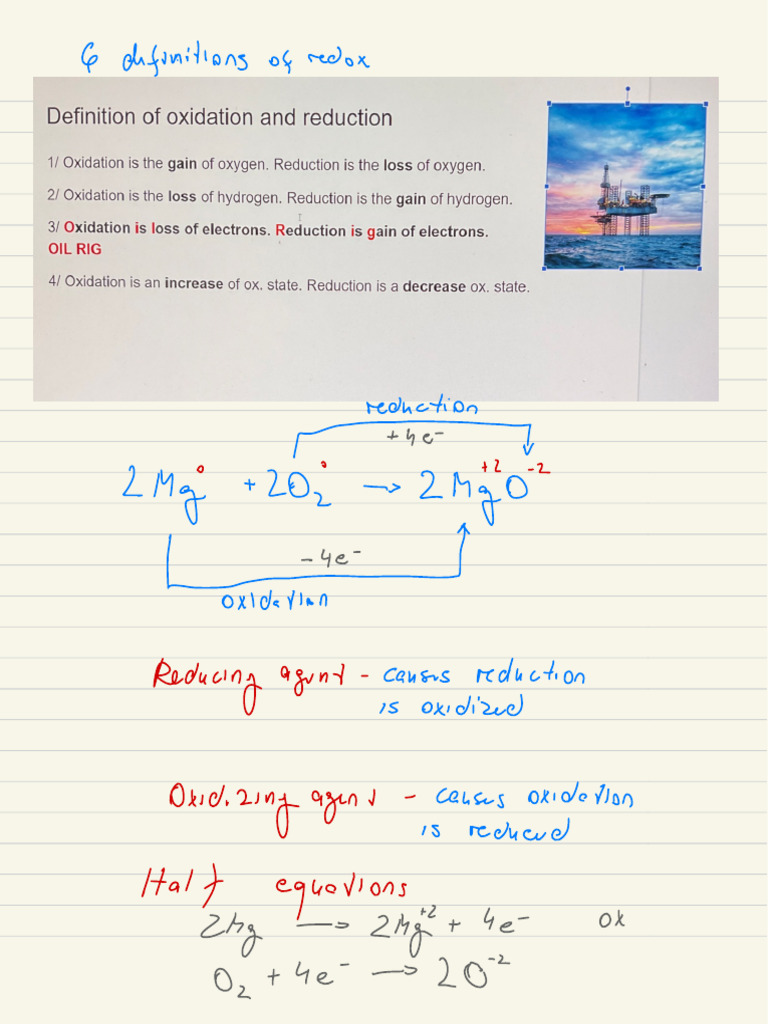 6 definitions of redox
Definition of oxidation and reduction
1/ Oxidation is the gain of oxygen. Reduction is the loss of oxygen.
2/ Oxidation is the loss of hydrogen. Reduction is the gain of hydrogen.
3/ Oxidation is loss of electrons. Reduction is gain of electrons.
OIL RIG
4/ Oxidation is an increase of ox. state. Reduction is a decrease ox. state.
reduction
+4e⁻
2Mg⁰ + 2O₂⁰ → 2Mg⁺²O⁻²
-4e⁻
oxidation
Reducing agent - causes reduction
is oxidized
Oxidizing agent - causes oxidation
is reduced
Half equations
2Mg → 2Mg⁺² + 4e⁻ ox
O₂ + 4e⁻ → 2O⁻²